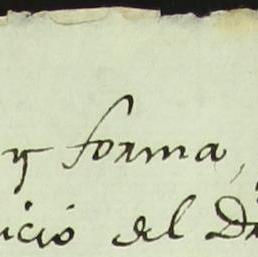 y forma,
icio del